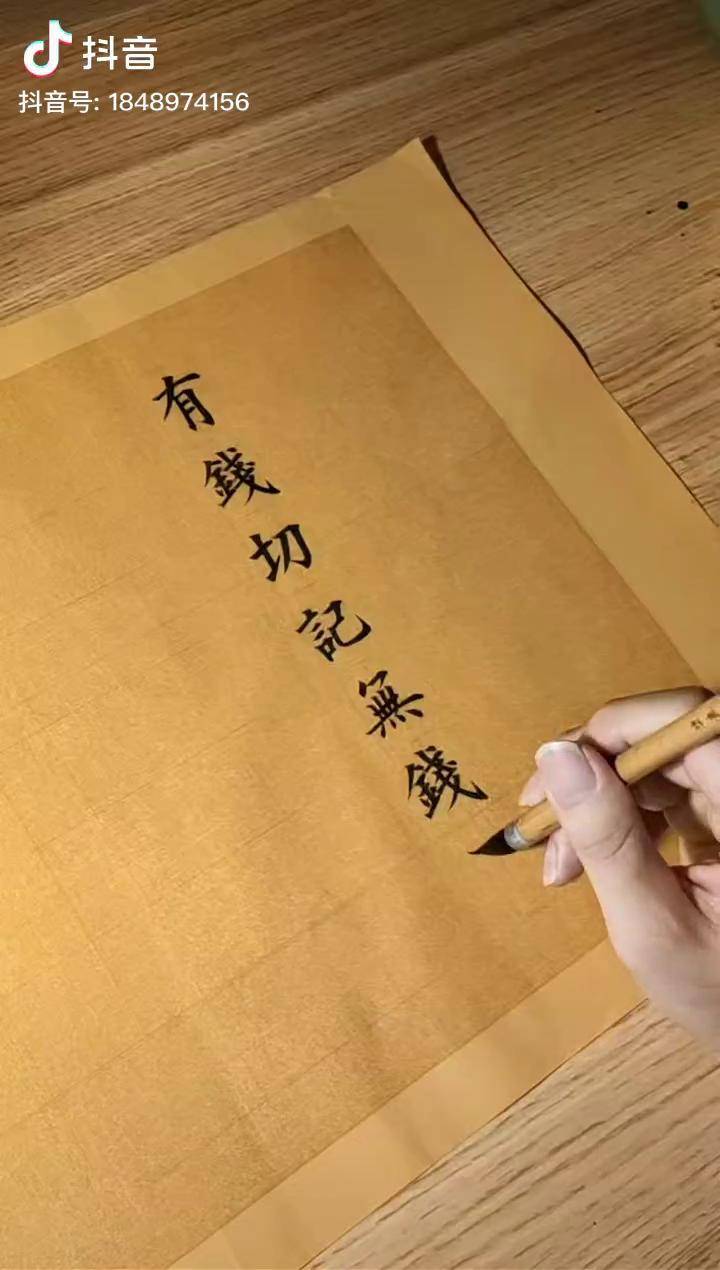 抖音
抖音号: 1848974156
有錢切記無錢